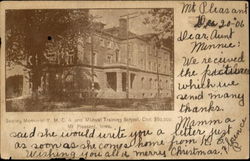 Mt Pleasant
Dec 20 - 06
Dear Aunt
Minnie:
We received
the pictures
which we
send many
thanks.
Mamma
said she would write you a letter just
as soon as she comes home from
Wishing you all a merry Christmas.
Seeley Memorial Y. M. C. A. and Manual Training School, Cost $50,000
Mt Pleasant, Iowa.